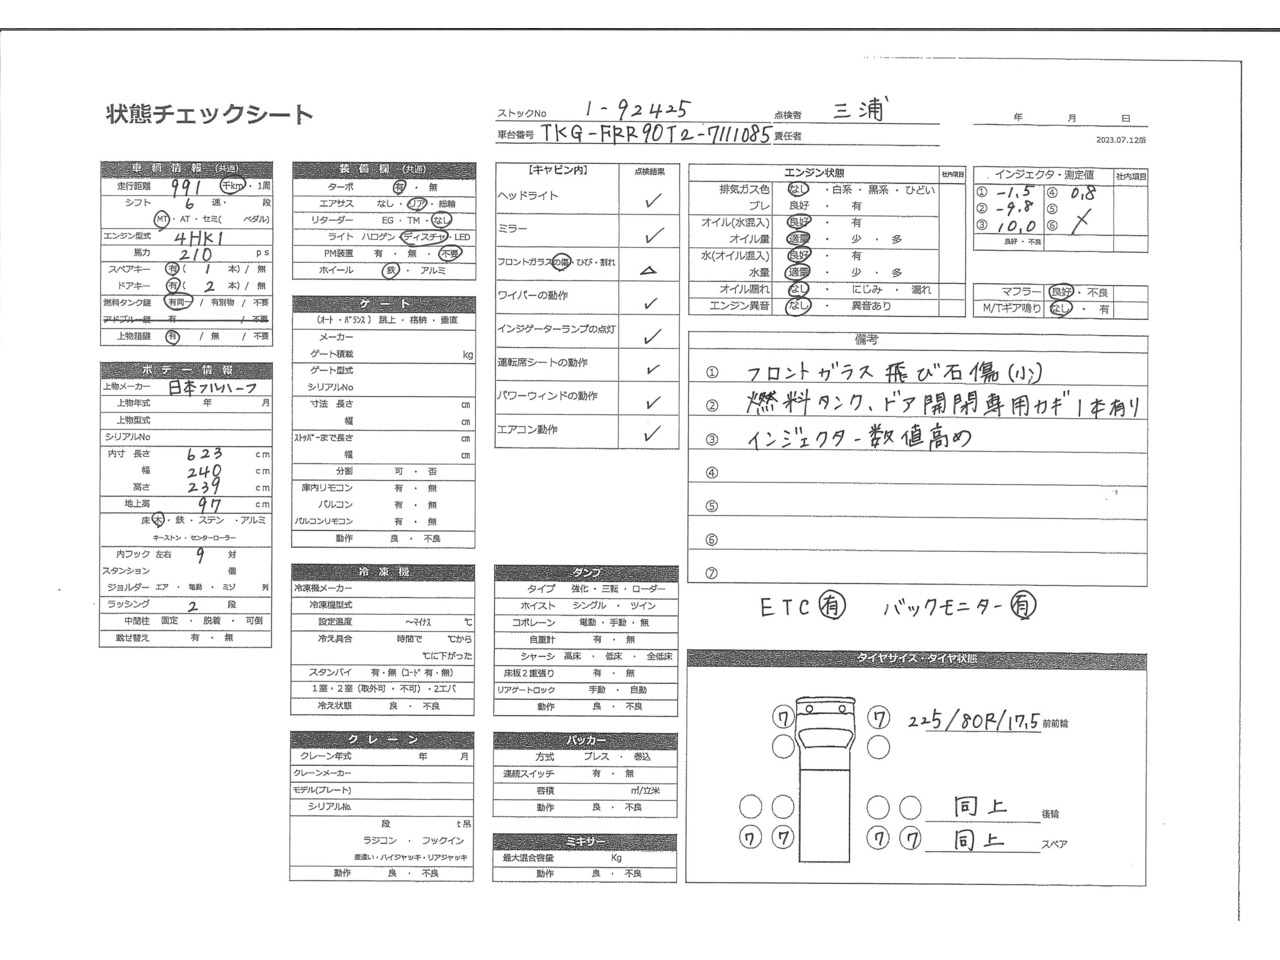 状態チェックシート
ストックNo 1-92425 点検者 三浦
車台番号 TKG-FRR90T2-7111085 責任者
年 月 日
2023.07.12版
車輌情報 (共通)
走行距離 991 千km・1周
シフト 6 速・ 段
MT・AT・セミ( ペダル)
エンジン型式 4HK1
馬力 210 ps
スペアキー 有( 1 本) / 無
ドアキー 有( 2 本) / 無
燃料タンク鍵 有同一 / 有別物 / 不要
アドブルー鍵 有 / 不要
上物箱鍵 有 / 無 / 不要
ボデー情報
上物メーカー 日本フルハーフ
上物年式 年 月
上物型式
シリアルNo
内寸 長さ 623 cm
幅 240 cm
高さ 239 cm
地上高 97 cm
床 木・鉄・ステン・アルミ
キーストン・センターローラー
内フック 左右 9 対
スタンション 個
ジョルダー エア ・ 電動 ・ ミゾ 列
ラッシング 2 段
中間柱 固定 ・ 脱着 ・ 可倒
載せ替え 有 ・ 無
装備欄 (共通)
ターボ 有 ・ 無
エアサス なし・リア・総輪
リターダー EG・TM・なし
ライト ハロゲン・ディスチャ・LED
PM装置 有 ・ 無 ・ 不要
ホイール 鉄 ・ アルミ
ゲート
(オート・バランス) 跳上・格納・垂直
メーカー
ゲート積載 kg
ゲート型式
シリアルNo
寸法 長さ cm
幅 cm
ストッパーまで長さ cm
幅 cm
分割 可 ・ 否
庫内リモコン 有 ・ 無
バルコン 有 ・ 無
バルコンリモコン 有 ・ 無
動作 良 ・ 不良
冷凍機
冷凍機メーカー
冷凍機型式
設定温度 ～マイナス ℃
冷え具合 時間で ℃から
℃に下がった
スタンバイ 有・無(コード有・無)
1室・2室(取外可・不可)・2エバ
冷え状態 良 ・ 不良
クレーン
クレーン年式 年 月
クレーンメーカー
モデル(プレート)
シリアルNo.
段 t吊
ラジコン ・ フックイン
差違い・ハイジャッキ・リアジャッキ
動作 良 ・ 不良
【キャビン内】 点検結果
ヘッドライト ✓
ミラー ✓
フロントガラスの傷・ひび・割れ △
ワイパーの動作 ✓
インジゲーターランプの点灯 ✓
運転席シートの動作 ✓
パワーウィンドの動作 ✓
エアコン動作 ✓
ダンプ
タイプ 強化・三転・ローダー
ホイスト シングル ・ ツイン
コボレーン 電動・手動・無
自重計 有 ・ 無
シャーシ 高床 ・ 低床 ・ 全低床
床板2重張り 有 ・ 無
リアゲートロック 手動 ・ 自動
動作 良 ・ 不良
パッカー
方式 プレス ・ 巻込
連続スイッチ 有 ・ 無
容積 ㎥/立米
動作 良 ・ 不良
ミキサー
最大混合容量 Kg
動作 良 ・ 不良
エンジン状態 社内項目
排気ガス色 なし・白系・黒系・ひどい
ブレ 良好 ・ 有
オイル(水混入) 良好 ・ 有
オイル量 適量 ・ 少 ・ 多
水(オイル混入) 良好 ・ 有
水量 適量 ・ 少 ・ 多
オイル漏れ なし・にじみ・漏れ
エンジン異音 なし・異音あり
インジェクタ・測定値 社内項目
① -1.5 ④ 0.8
② -9.8 ⑤
③ 10.0 ⑥
良好・不良
マフラー 良好・不良
M/Tギア鳴り なし・有
備考
① フロントガラス飛び石傷(小)
② 燃料タンク、ドア開閉専用カギ1本有り
③ インジェクター数値高め
④
⑤
⑥
⑦
ETC 有 バックモニター 有
タイヤサイズ・タイヤ状態
7 7 225/80R/17.5 前前輪
同上 後輪
7 7 7 7 同上 スペア